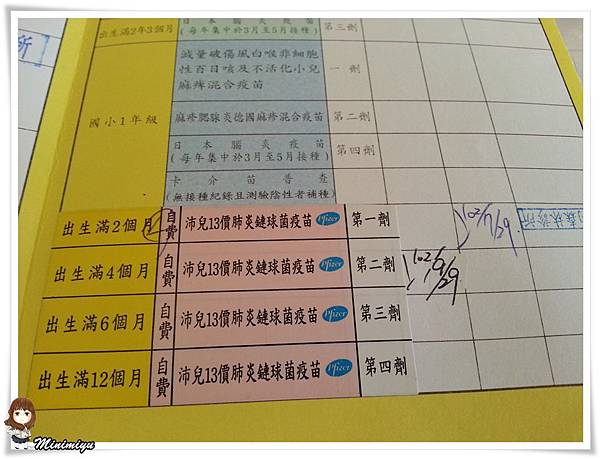 所
出生滿2年3個月 日本腦炎疫苗 第三劑
(每年集中於3月至5月接種)
國小1年級 減量破傷風白喉非細胞 一劑
性百日咳及不活化小兒
麻痺混合疫苗
麻疹腮腺炎德國麻疹混合疫苗 第二劑
日本腦炎疫苗 第四劑
(每年集中於3月至5月接種)
卡介苗普查
(無接種紀錄且測驗陰性者補種)
出生滿2個月 自費 沛兒13價肺炎鏈球菌疫苗 Pfizer 第一劑
出生滿4個月 自費 沛兒13價肺炎鏈球菌疫苗 Pfizer 第二劑
出生滿6個月 自費 沛兒13價肺炎鏈球菌疫苗 Pfizer 第三劑
出生滿12個月 自費 沛兒13價肺炎鏈球菌疫苗 Pfizer 第四劑
診所
Minimiyu